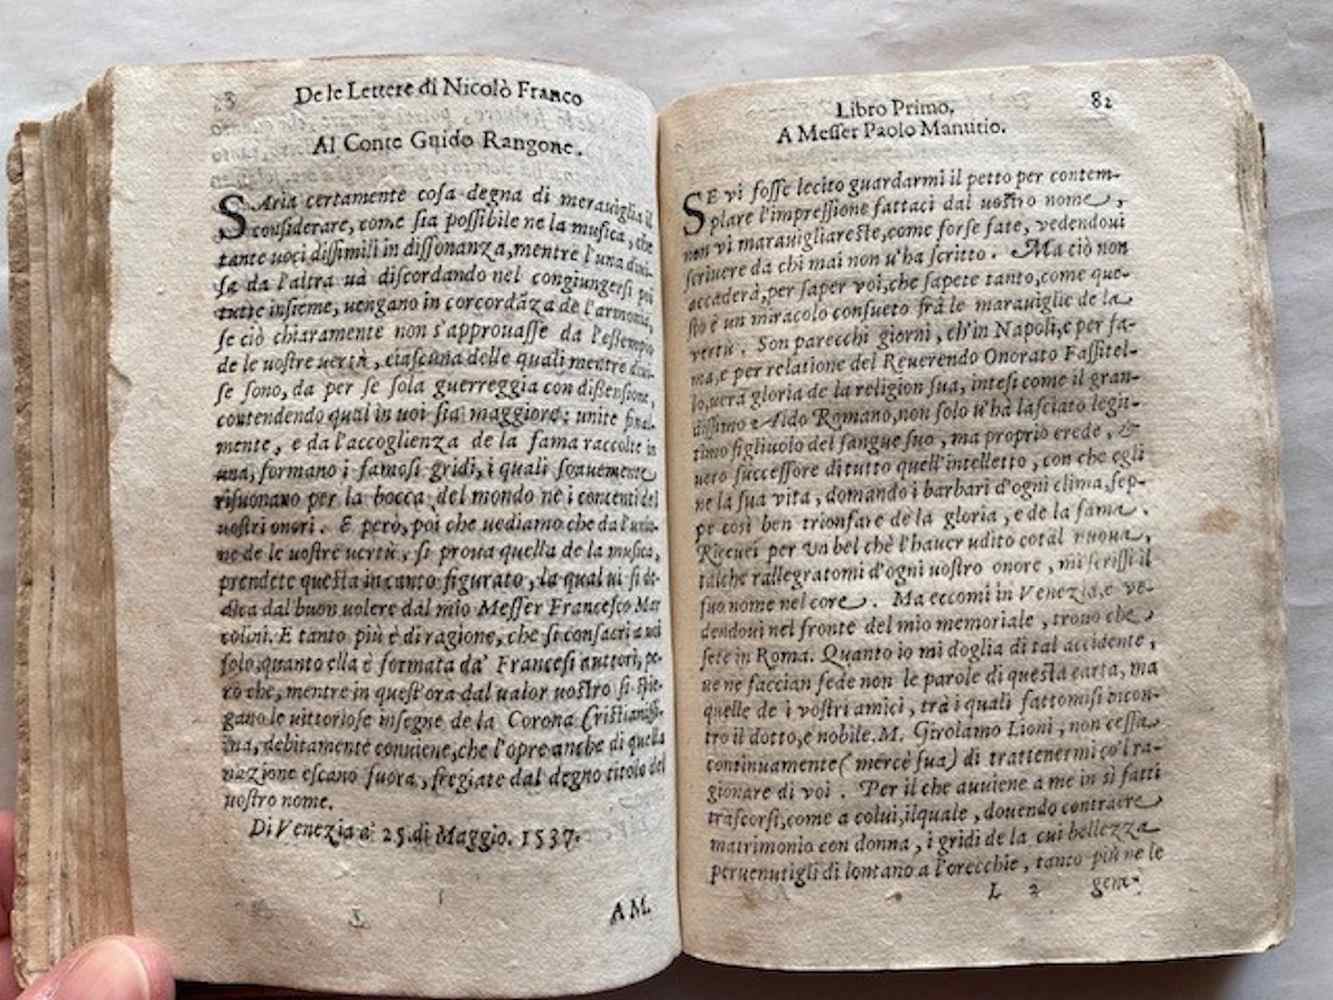 De le Lettere di Nicolò Franco
Al Conte Guido Rangone.
SAria certamente cosa degna di merauiglia il
considerare, come sia possibile ne la musica, che
tante uoci dissimili in dissonanza, mentre l'una diui-
sa da l'altra uà discordando nel congiungersi poi
tutte insieme, uengano in corcordãza de l'armonia,
se ciò chiaramente non s'approuasse da l'essempio
de le uostre uertù, ciascuna delle quali mentre diui-
se sono, da per se sola guerreggia con dissensione,
contendendo qual in uoi sia maggiore; unite final-
mente, e da l'accoglienza de la fama raccolte in
una, formano i famosi gridi, i quali soauemente
risuonano per la bocca del mondo ne i concenti del
uostri onori. E però, poi che uediamo che da l'unio-
ne de le uostre uertù, si proua quella de la musica,
prendete questa in canto figurato, la qual ui si de-
dica dal buon uolere dal mio Messer Francesco Mar
colini. E tanto più è di ragione, che si consacri a uoi
solo, quanto ella è formata da' Francesi auttori, pe-
rò che, mentre in quest'ora dal ualor uostro si spie-
gano le uittoriose insegne de la Corona Cristianissi-
ma, debitamente conuiene, che l'opre anche di quella
nazione escano fuora, fregiate dal degno titolo del
uostro nome.
Di Venezia a' 25. di Maggio. 1537.
A M.
Libro Primo. 82
A Messer Paolo Manutio.
SE vi fosse lecito guardarmi il petto per contem-
plare l'impressione fattaci dal uostro nome,
non vi marauigliareste, come forse fate, vedendoui
scriuere da chi mai non u'ha scritto. Ma ciò non
accaderà, per saper voi, che sapete tanto, come que-
sto è un miracolo consueto frà le marauiglie de la
vertù. Son parecchi giorni, ch'in Napoli, e per fa-
ma, e per relatione del Reuerendo Onorato Fassitel-
lo, uera gloria de la religion sua, intesi come il gran-
dissimo Aldo Romano, non solo u'hà lasciato legit-
timo figliuolo del sangue suo, ma proprio erede, &
uero successore di tutto quell'intelletto, con che egli
ne la sua vita, domando i barbari d'ogni clima, sep-
pe così ben trionfare de la gloria, e de la fama.
Riceuei per un bel chè l'hauer udito cotal nuoua,
talche rallegratomi d'ogni uostro onore, mi scrissi il
suo nome nel core. Ma eccomi in Venezia, e ve-
dendoui nel fronte del mio memoriale, trouo che
sete in Roma. Quanto io mi doglia di tal accidente,
ue ne faccian fede non le parole di questa carta, ma
quelle de i vostri amici, trà i quali fattomisi incon-
tro il dotto, e nobile. M. Girolamo Lioni, non cessa
continuamente (mercè sua) di trattenermi co'l ra-
gionare di voi. Per il che auuiene a me in sì fatti
trascorsi, come a colui, ilquale, douendo contraere
matrimonio con donna, i gridi de la cui bellezza
peruenutigli di lontano a l'orecchie, tanto più ne le
L 2 gene